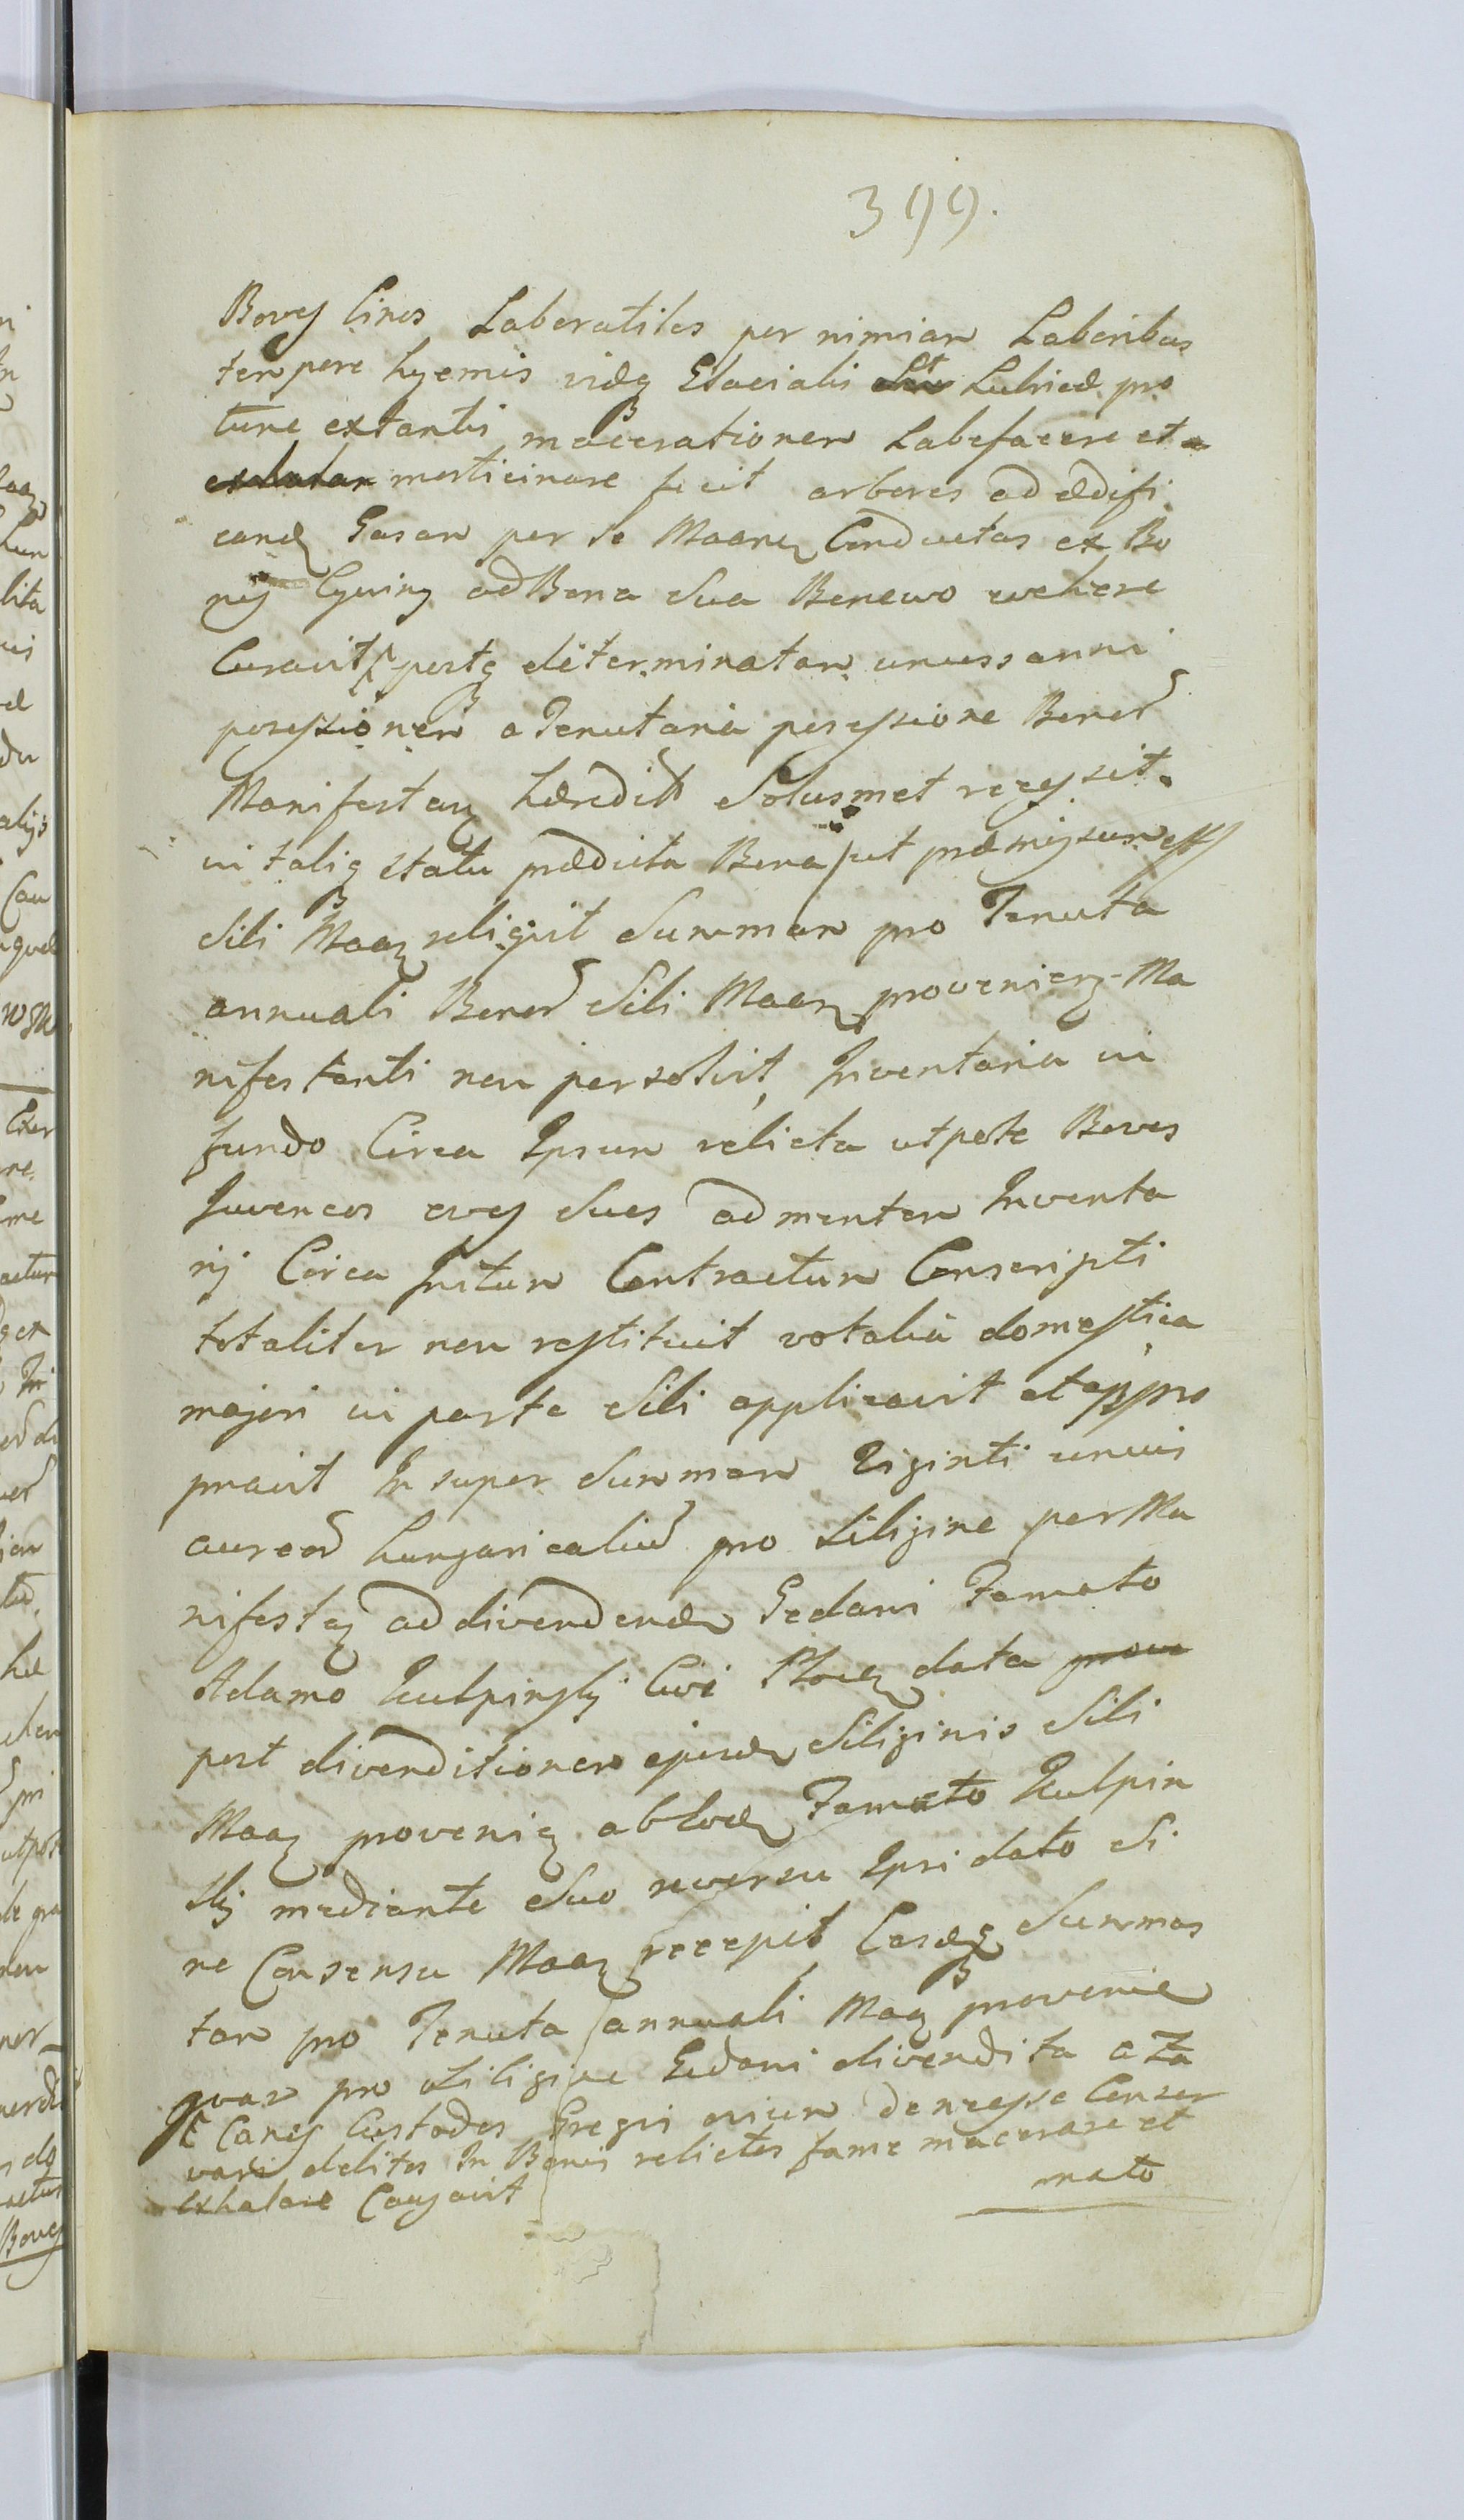 399.
Boves binos Laboratiles per nimiam Laboribus
tempore hyemis viaq Glaciali Lubrica pro
tunc extantis macerationem Labefacere et
morticinare fecit arbores ad ædifi
cand Casam per se Maane Conductas ex Bo
nis ad Bona sua Benewo vehere
Curavit postq determinatam unius anni
possessionem a Tenutaria possessione Bonor
Manifestan hæredit Solusmet recessit
in taliq statu prædicta Bona put præmissum est
Sibi Maan reliquit Summam pro Tenuta
annuali Bonor Sibi Maan provenien Ma
nifestanti non persolvit, Inventaria in
fundo Circa Ipsum relicta utpote Boves
Juvencos oves Sues ad mentem Inventa
rij Circa Initum Contractum Conscripti
totaliter non restituit volalia domestica
majori in parte Sibi applicavit et appro
priavit Insuper Summam Viginti unius
aureor hungaricaliu pro Siligine per Ma
nifestan ad divendend Gedani Famato
Adamo Kulpinski Civi data
post divenditionem ejusd Siliginis Sibi
Maan provenien ab eod Famato Kulpin
skij mediante Suo reversu Ipsi dato Si
ne Consensu Maan recepit Easdeq Summas
tam pro Tenuta annuali Maan provenie
quam pro Siligine Gedani divendita a Fa
Canes Custodes Gregri ovium de necesse Conser
vari debitos In Bonis relictos fame macerare et
exhalare Causavit
mato